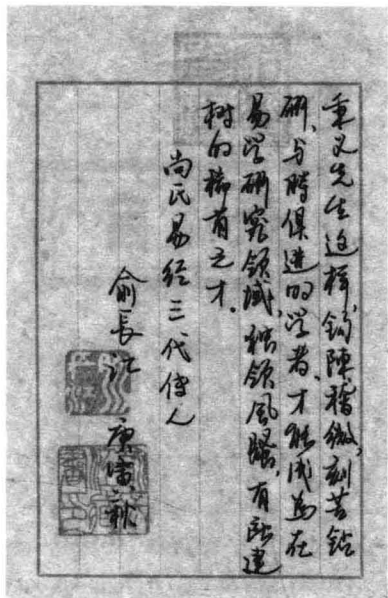 秉义先生这样钩陈稽微,刻苦钻
研、与時俱進的学者、才能成為在
易学研究領域,独领風騷,有所建
树的稀有之才.
尚氏易经三代传人
俞長江
庚寅秋